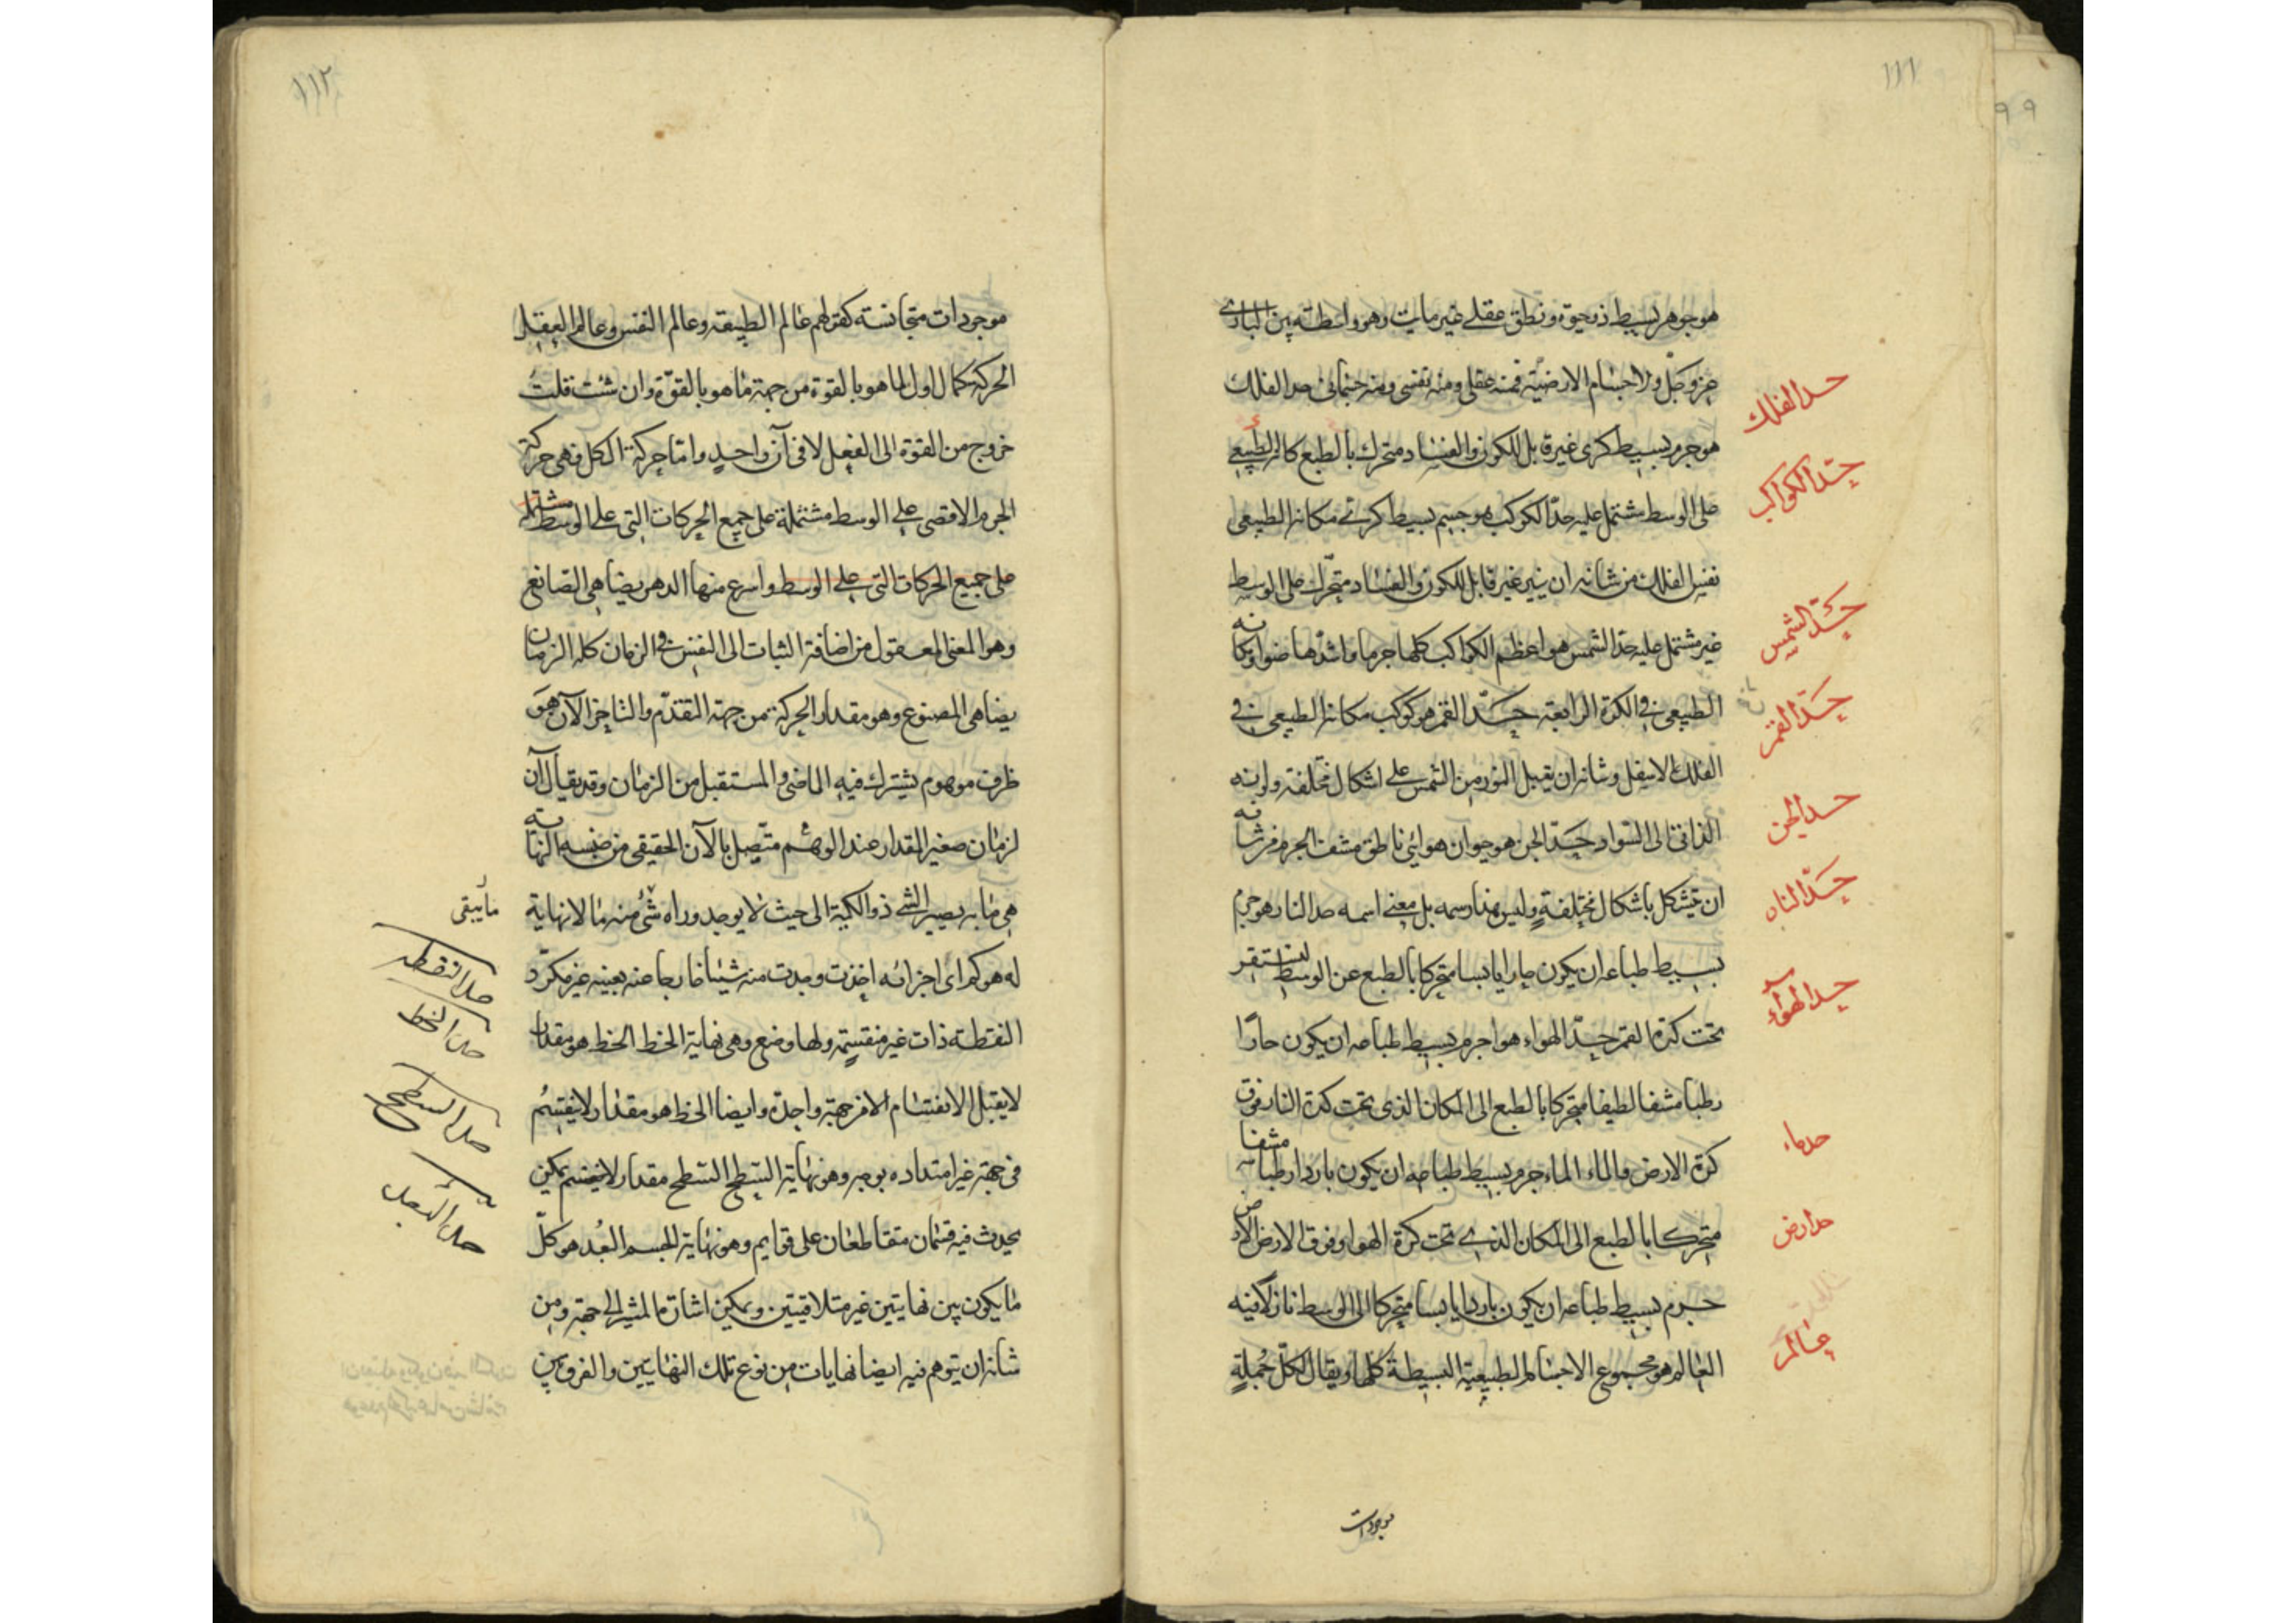 ١١١
هو جوهر بسيط ذو حيوة و نطق عقلى غير مايت و هو واسطة بين البارى
عز و جل و الاجسام الارضية فمنه عقلى و منه نفسى و منه جسمانى حد الفلك
حد الفلك
هو جرم بسيط كرى غير قابل للكون و الفساد متحرك بالطبع كالة الطبيعى
حد الكواكب
على الوسط مشتمل عليه حد الكوكب هو جسم بسيط كرى مكانه الطبيعى
نفس الفلك من شانه ان ينير غير قابل للكون و الفساد متحرك على الوسط
حد الشمس
غير مشتمل عليه حد الشمس هو اعظم الكواكب كلها جرما و اشدها ضوا و مكانه
حد القمر
الطبيعى فى الكرة الرابعة حد القمر هو كوكب مكانه الطبيعى فى
الفلك الاسفل و شانه ان يقبل النور من الشمس على اشكال مختلفة و لونه
حد الجن
الذاتى الى السواد حد الجن هو حيوان هوائى ناطق مشف الجرم من شانه
حد النار
ان يتشكل باشكال مختلفة و ليس هذا رسمه بل معنى اسمه حد النار هو جرم
بسيط طباعه ان يكون حارا يابسا متحركا بالطبع عن الوسط ليستقر
حد الهواء
تحت كرة القمر حد الهواء هو اجرم بسيط طباعه ان يكون حارا
رطبا مشفا لطيفا متحركا بالطبع الى المكان الذى تحت كرة النار فوق
حد ماء
كرة الارض و الماء الماء جرم بسيط طباعه ان يكون باردا رطبا مشفا
حد ارض
متحركا بالطبع الى المكان الذى تحت كرة الهوا و فوق الارض الارض
جرم بسيط طباعه ان يكون باردا يابسا متحركا الى الوسط نازلا فيه
عالم
العالم هو مجموع الاجسام الطبيعية البسيطة كلها و يقال لكل جملة
موجودات
١١٢
موجودات متجانسة كقولهم عالم الطبيعة و عالم النفس و عالم العقل
الحركة كمال اول لما هو بالقوة من جهة ما هو بالقوة و ان شئت قلت
خروج من القوة الى الفعل لا فى آن واحد و اما حركة الكل فهى حركة
الجرم الاقصى على الوسط مشتملة على جميع الحركات التى على الوسط مشتملة
على جميع الحركات التى على الوسط و اسرع منها الدهر يضاهى الصانع
و هو المعنى المعقول من اضافة الثبات الى النفس فى الزمان كله الزمان
يضاهى المصنوع و هو مقدار الحركة من جهة التقدم و التاخر الآن هو
ظرف موهوم يشترك فيه الماضى و المستقبل من الزمان و قد يقال آن
لزمان صغير المقدار عند الوهم متصل بالآن الحقيقى من جنسه النهاية
هى ما به يصير الشئ ذو الكمية الى حيث لا يوجد وراه شئ منه ما لا نهاية
ما يبقى
له هو كم اى اجزائه اخذت وجدت منه شيئا خارجا عنه بعينه غير مكرر
حد النقطه
النقطة ذات غير منقسمة و لها وضع و هى نهاية الخط الخط هو مقدار
حد الخط
لا يقبل الانقسام الا من جهة واحدة و ايضا الخط هو مقدار لا ينقسم
حد السطح
فى جهة غير امتداده بوجه و هو نهاية السطح السطح مقدار لا ينقسم يمكن
حد البعد
يحدث فيه قسمان متقاطعان على قوايم و هو نهاية الجسم البعد هو كل
ما يكون بين نهايتين غير متلاقيتين و يمكن اشارة المشير الى جهته و من
شانه ان يتوهم فيه ايضا نهايات من نوع تلك النهايتين و الفرق بين